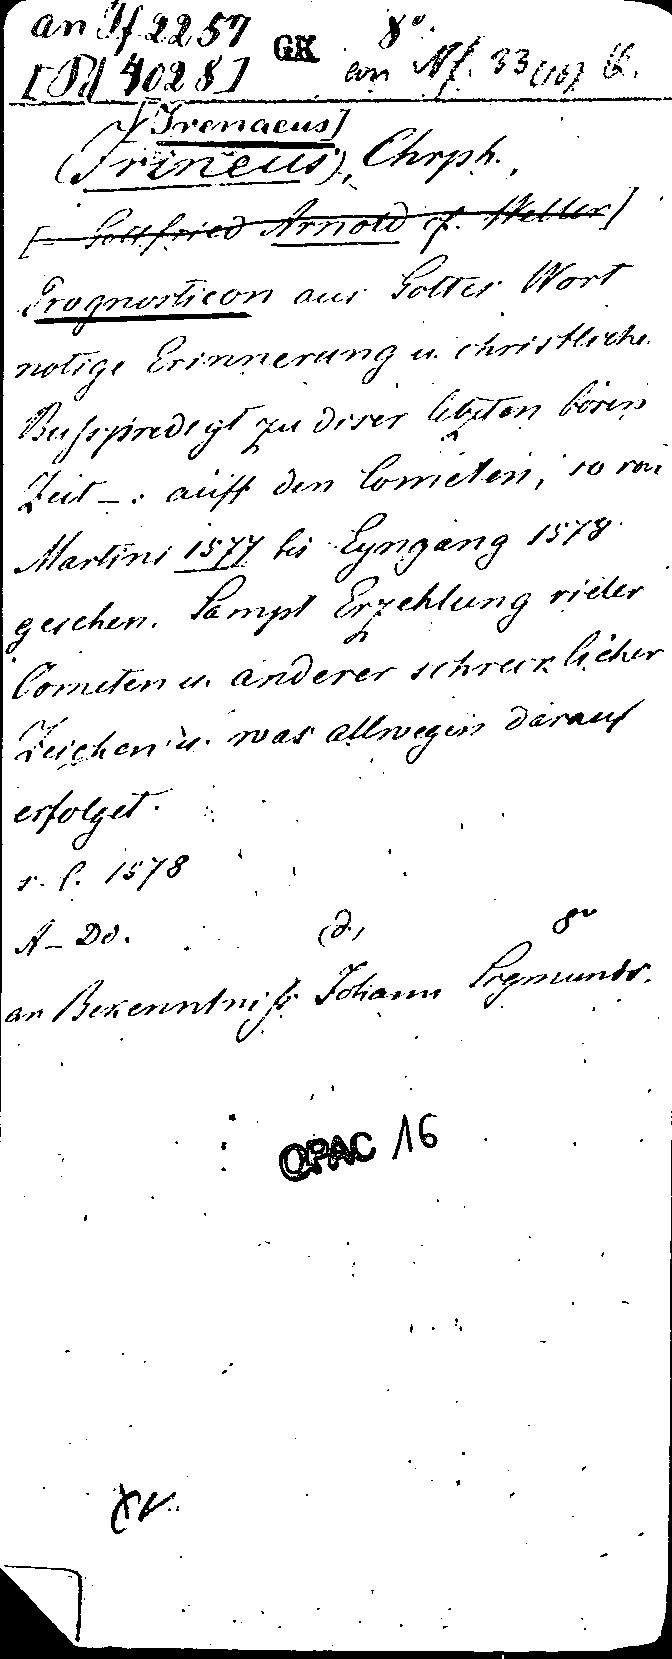 an If 2257 GK 8°
[Pd 4028] an Nf. 33(10) B.
[Irenaeus]
(Irineus), Chrph.,
[- Gottfried Arnold cf. Weller]
Prognosticon aus Gottes Wort
nötige Erinnerung u. christliche
Busspredigt zu dieser letzten bösen
Zeit -: auff den Cometen, so von
Martini 1577 bis Eyngang 1578
gesehen. Sampt Erzehlung vieler
Cometen u. anderer schrecklicher
Zeichen u. was allwegen darauf
erfolget.
s. l. 1578
A-Dd. (d) 8°
an Bekenntniß Johann Sigmunds.
OPAC 16